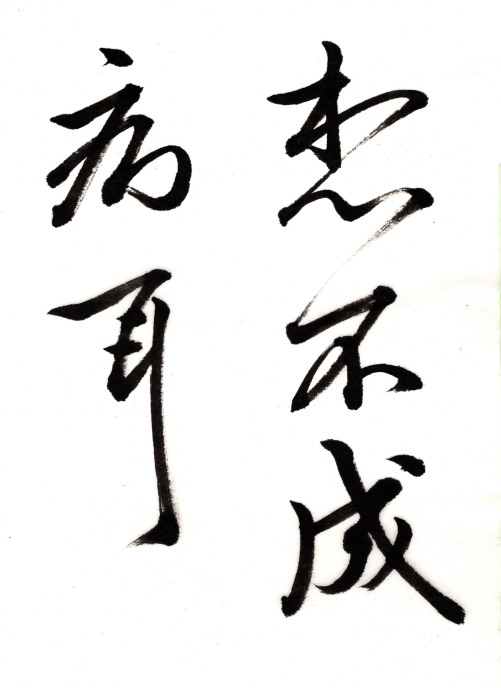 想不成
病耳